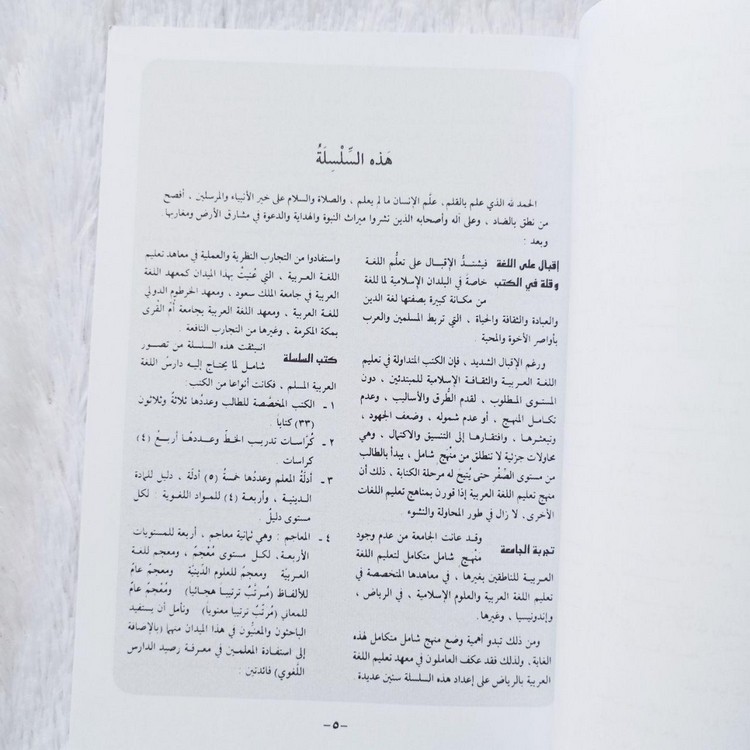 هَذه السِّلْسِلَةُ
الحمد لله الذي علم بالقلم، علّم الإنسان ما لم يعلم، والصلاة والسلام على خير الأنبياء والمرسلين، أفصح
من نطق بالضاد، وعلى آله وأصحابه الذين نشروا ميراث النبوة والهداية والدعوة في مشارق الأرض ومغاربها
وبعد :
إقبال على اللغة
وقلة في الكتب
فيشتدُّ الإقبال على تعلُّم اللغة
خاصةً في البلدان الإسلامية لما للغة
من مكانة كبيرة بصفتها لغة الدين
والعبادة والثقافة والحياة، التي تربط المسلمين والعرب
بأواصر الأخوة والمحبة .
ورغم الإقبال الشديد، فإن الكتب المتداولة في تعليم
اللغة العربية والثقافة الإسلامية للمبتدئين، دون
المستوى المطلوب، لقدم الطُّرق والأساليب، وعدم
تكامل المنهج، أو عدم شموله، وضعف الجهود،
وتبعثرها، وافتقارها إلى التنسيق والاكتمال، وهي
محاولات جزئية لا تنطلق من منْهج شامل، يبدأ بالطالب
من مستوى الصِّفْر حتى يُتيح له مرحلة الكتابة، ذلك أن
منهج تعليم اللغة العربية إذا قورن بمناهج تعليم اللغات
الأخرى، لا زال في طور المحاولة والنشوء
تجربة الجامعة
وقد عانت الجامعة من عدم وجود
منْهج شامل متكامل لتعليم اللغة
العربية للناطقين بغيرها، في معاهدها المتخصصة في
تعليم اللغة العربية والعلوم الإسلامية، في الرياض،
وإندونيسيا، وغيرها.
ومن ذلك تبدو أهمية وضع منهج شامل متكامل لهذه
الغاية، ولذلك فقد عكف العاملون في معهد تعليم اللغة
العربية بالرياض على إعداد هذه السلسلة سنين عديدة.
واستفادوا من التجارب النظرية والعملية في معاهد تعليم
اللغة العربية، التي عُنيتْ بهذا الميدان كمعهد اللغة
العربية في جامعة الملك سعود، ومعهد الخرطوم الدولي
للغة العربية، ومعهد اللغة العربية بجامعة أُمّ القُرى
بمكة المكرمة، وغيرها من التجارب النافعة .
كتب السلسلة
انبثقت هذه السلسلة من تصور
شامل لما يحتاج إليه دارسُ اللغة
العربية المسلم، فكانت أنواعا من الكتب:
١ - الكتب المخصّصة للطالب وعددُها ثلاثةٌ وثلاثون
(٣٣) كتاباً .
٢ - كُرّاسات تدريب الخطّ وعددها أربعٌ (٤)
كراسات .
٣ - أدلّةُ المعلم وعددها خمسةُ (٥) أدلّة، دليل للمادة
الدينية، وأربعة (٤) للمواد اللغوية : لكل
مستوى دليلٌ .
٤ - المعاجم : وهي ثمانية معاجم، أربعة للمستويات
الأربعة، لكل مستوى مُعْجمٌ، ومعجم للغة
العربيّة ومعجمٌ للعلوم الدّينيّة ومعجمٌ عامٌ
للألفاظ (مُرتّبٌ ترتيبا هجائيا) ومُعْجمٌ عامٌ
للمعاني (مُرتّبٌ ترتيبا معنوياً) ونأمل أن يستفيد
الباحثون والمعنيُّون في هذا الميدان منهما (بالإضافة
إلى استفادة المعلمين في معرفة رصيد الدارس
اللّغوي) فائدتين :
– ٥ –